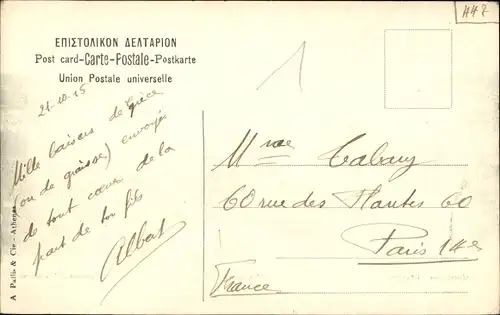 447
ΕΠΙΣΤΟΛΙΚΟΝ ΔΕΛΤΑΡΙΟΝ
Post card-Carte-Postale-Postkarte
Union Postale universelle
21-10-15
Mille baisers de Grèce
(ou de graisse) envoyés
de tout cœur de la
part de ton fils
Albert
A Pallis & Cie - Athènes
Mme Cabany
60 rue des Plantes 60
Paris 14e
France